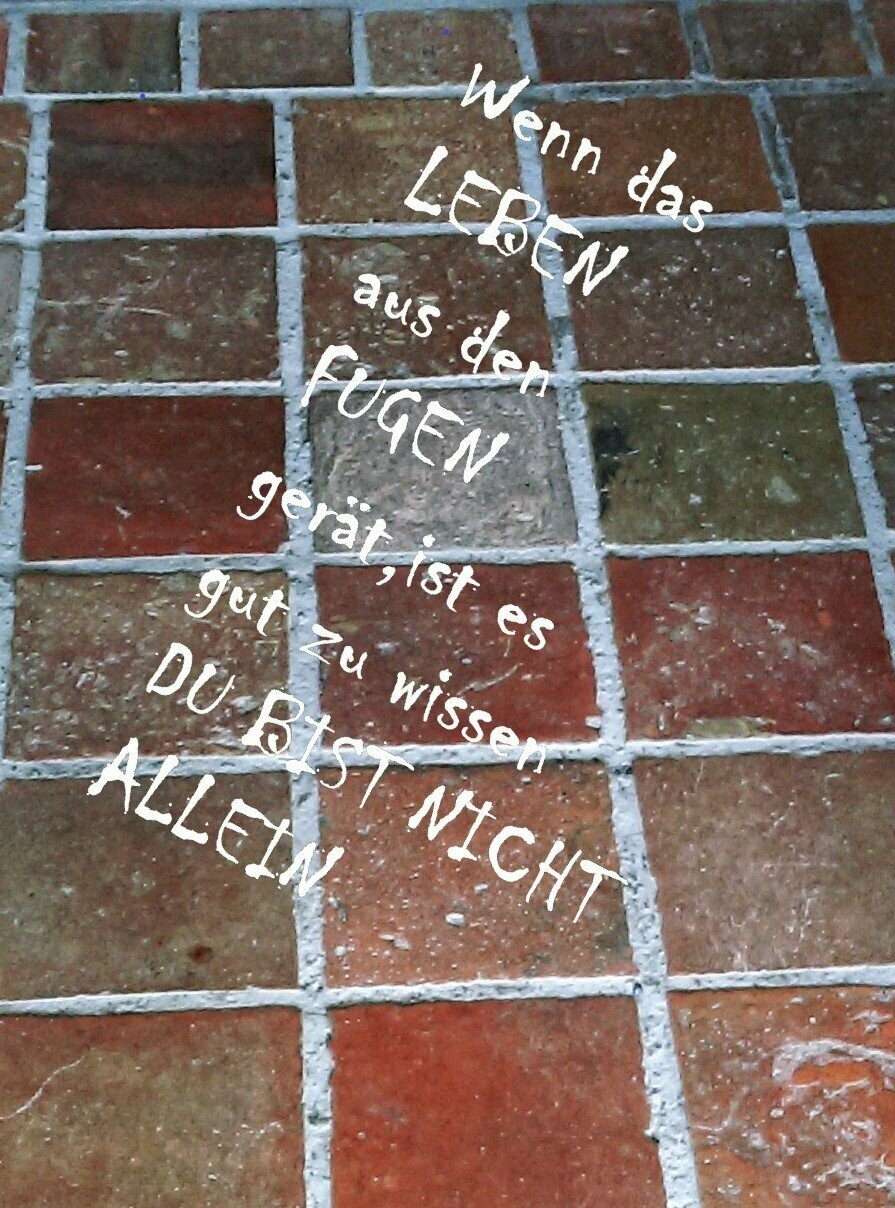 Wenn das
LEBEN
aus den
FUGEN
gerät, ist es
gut zu wissen
DU BIST NICHT
ALLEIN